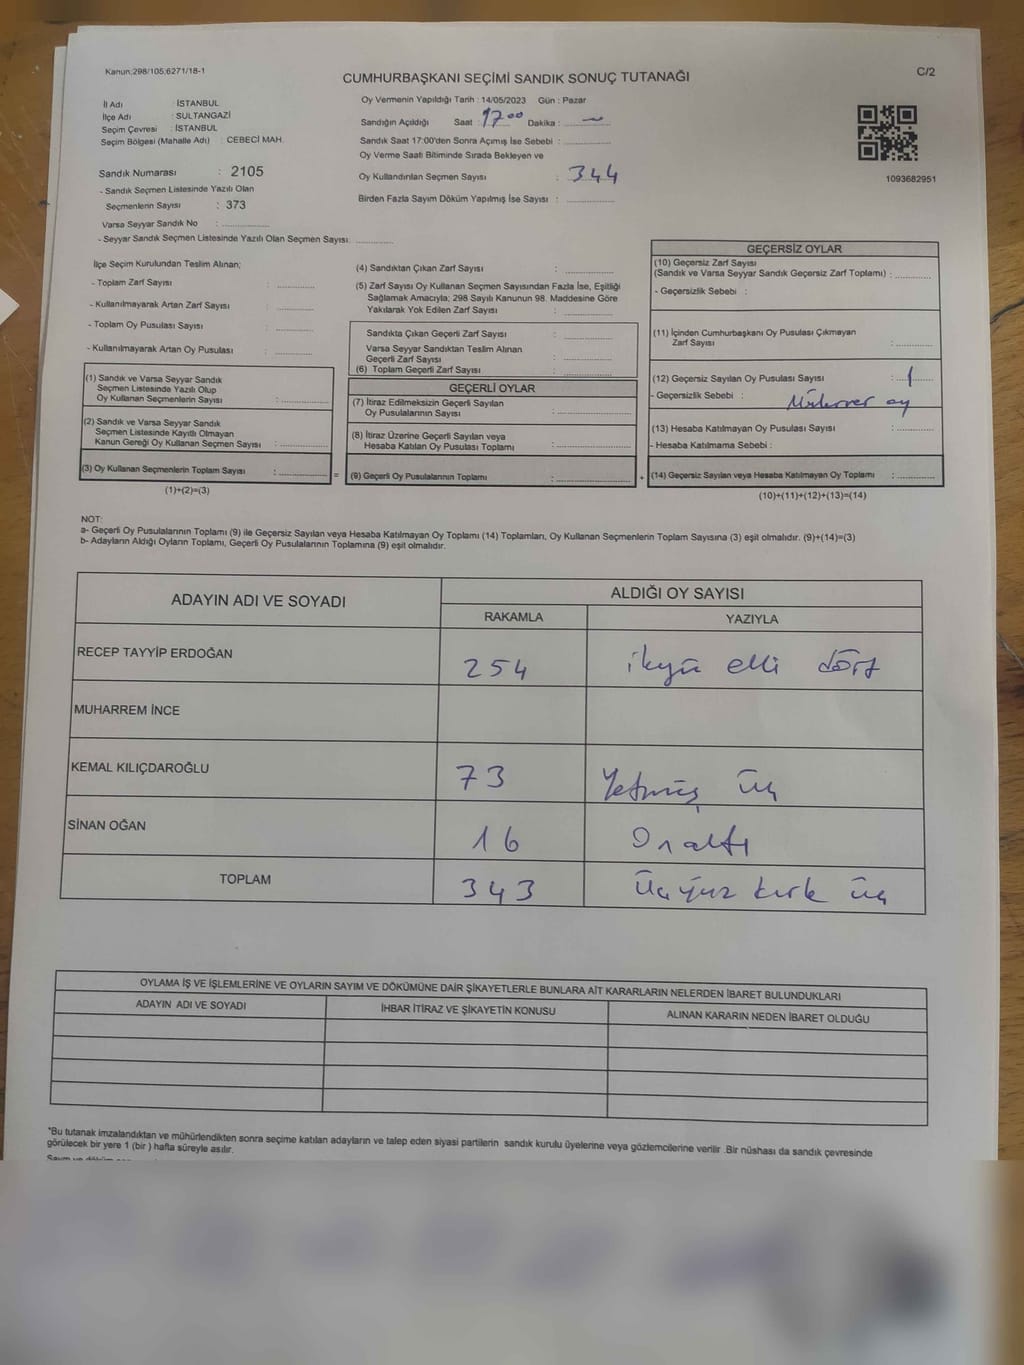 Kanun;298/105;6271/18-1
C/2
CUMHURBAŞKANI SEÇİMİ SANDIK SONUÇ TUTANAĞI
İl Adı : İSTANBUL
İlçe Adı : SULTANGAZİ
Seçim Çevresi : İSTANBUL
Seçim Bölgesi (Mahalle Adı) : CEBECİ MAH.
Sandık Numarası : 2105
- Sandık Seçmen Listesinde Yazılı Olan
Seçmenlerin Sayısı : 373
Varsa Seyyar Sandık No : ..............
- Seyyar Sandık Seçmen Listesinde Yazılı Olan Seçmen Sayısı: ..............
Oy Vermenin Yapıldığı Tarih : 14/05/2023 Gün : Pazar
Sandığın Açıldığı Saat : 17 00 Dakika : ..............
Sandık Saat 17:00'den Sonra Açımış İse Sebebi : ..............
Oy Verme Saati Bitiminde Sırada Bekleyen ve
Oy Kullandırılan Seçmen Sayısı : 344
Birden Fazla Sayım Döküm Yapılmış İse Sayısı : ..............
1093682951
İlçe Seçim Kurulundan Teslim Alınan;
- Toplam Zarf Sayısı : ..............
- Kullanılmayarak Artan Zarf Sayısı : ..............
- Toplam Oy Pusulası Sayısı : ..............
- Kullanılmayarak Artan Oy Pusulası : ..............
(1) Sandık ve Varsa Seyyar Sandık
Seçmen Listesinde Yazılı Olup
Oy Kullanan Seçmenlerin Sayısı : ..............
(2) Sandık ve Varsa Seyyar Sandık
Seçmen Listesinde Kayıtlı Olmayan
Kanun Gereği Oy Kullanan Seçmen Sayısı : ..............
(3) Oy Kullanan Seçmenlerin Toplam Sayısı : .............. =
(1)+(2)=(3)
(4) Sandıktan Çıkan Zarf Sayısı : ..............
(5) Zarf Sayısı Oy Kullanan Seçmen Sayısından Fazla İse, Eşitliği
Sağlamak Amacıyla; 298 Sayılı Kanunun 98. Maddesine Göre
Yakılarak Yok Edilen Zarf Sayısı : ..............
Sandıkta Çıkan Geçerli Zarf Sayısı : ..............
Varsa Seyyar Sandıktan Teslim Alınan
Geçerli Zarf Sayısı : ..............
(6) Toplam Geçerli Zarf Sayısı : ..............
GEÇERLİ OYLAR
(7) İtiraz Edilmeksizin Geçerli Sayılan
Oy Pusulalarının Sayısı : ..............
(8) İtiraz Üzerine Geçerli Sayılan veya
Hesaba Katılan Oy Pusulası Toplamı : ..............
(9) Geçerli Oy Pusulalarının Toplamı : .............. +
GEÇERSİZ OYLAR
(10) Geçersiz Zarf Sayısı
(Sandık ve Varsa Seyyar Sandık Geçersiz Zarf Toplamı) : ..............
- Geçersizlik Sebebi :
(11) İçinden Cumhurbaşkanı Oy Pusulası Çıkmayan
Zarf Sayısı : ..............
(12) Geçersiz Sayılan Oy Pusulası Sayısı : 1
- Geçersizlik Sebebi : oy
(13) Hesaba Katılmayan Oy Pusulası Sayısı : ..............
- Hesaba Katılmama Sebebi :
(14) Geçersiz Sayılan veya Hesaba Katılmayan Oy Toplamı : ..............
(10)+(11)+(12)+(13)=(14)
NOT:
a- Geçerli Oy Pusulalarının Toplamı (9) ile Geçersiz Sayılan veya Hesaba Katılmayan Oy Toplamı (14) Toplamları, Oy Kullanan Seçmenlerin Toplam Sayısına (3) eşit olmalıdır. (9)+(14)=(3)
b- Adayların Aldığı Oyların Toplamı, Geçerli Oy Pusulalarının Toplamına (9) eşit olmalıdır.
ADAYIN ADI VE SOYADI
ALDIĞI OY SAYISI
RAKAMLA YAZIYLA
RECEP TAYYİP ERDOĞAN 254 ikiyüz elli dört
MUHARREM İNCE
KEMAL KILIÇDAROĞLU 73 Yetmiş üç
SİNAN OĞAN 16 Onaltı
TOPLAM 343 Üçyüz kırk üç
OYLAMA İŞ VE İŞLEMLERİNE VE OYLARIN SAYIM VE DÖKÜMÜNE DAİR ŞİKAYETLERLE BUNLARA AİT KARARLARIN NELERDEN İBARET BULUNDUKLARI
ADAYIN ADI VE SOYADI İHBAR İTİRAZ VE ŞİKAYETİN KONUSU ALINAN KARARIN NEDEN İBARET OLDUĞU
*Bu tutanak imzalandıktan ve mühürlendikten sonra seçime katılan adayların ve talep eden siyasi partilerin sandık kurulu üyelerine veya gözlemcilerine verilir .Bir nüshası da sandık çevresinde
görülecek bir yere 1 (bir ) hafta süreyle asılır.